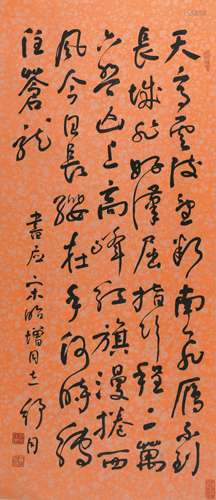 天高雲淡望斷南飛雁不到
長城非好漢屈指行程二萬
六盤山上高峰紅旗漫捲西
風今日長纓在手何時縛
住蒼龍
書應 宋增同志 舒同